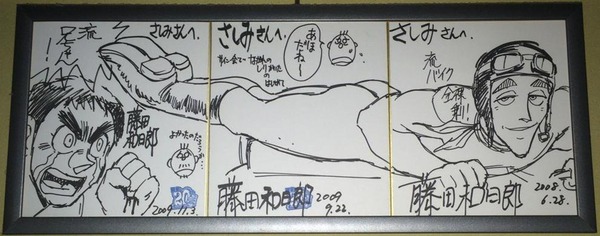 さしみさんへ。
流
藤田
和日郎
よかったのだ
2009.11.3
さしみさんへ。
あほ
だねー
藤田和日郎
2009
9.22.
さしみさんへ。
流
バイク
全裸
藤田和日郎
2008.
6.28.